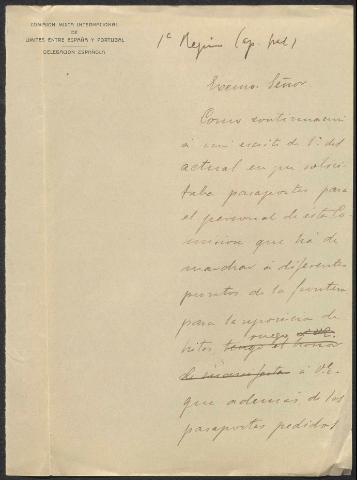 COMISIÓN MIXTA INTERNACIONAL
DE
LÍMITES ENTRE ESPAÑA Y PORTUGAL
DELEGACIÓN ESPAÑOLA
1ª Region
Excmo. Señor
Como continuacion
á mi escrito de 1º del
actual en que solici
taba pasaportes para
el personal de esta Co
mision que há de
marchar á diferentes
puntos de la frontera
para la reposicion de
ruego a V.E.
hitos, tengo el honor
de á V.E.
que además de los
pasaportes pedidos